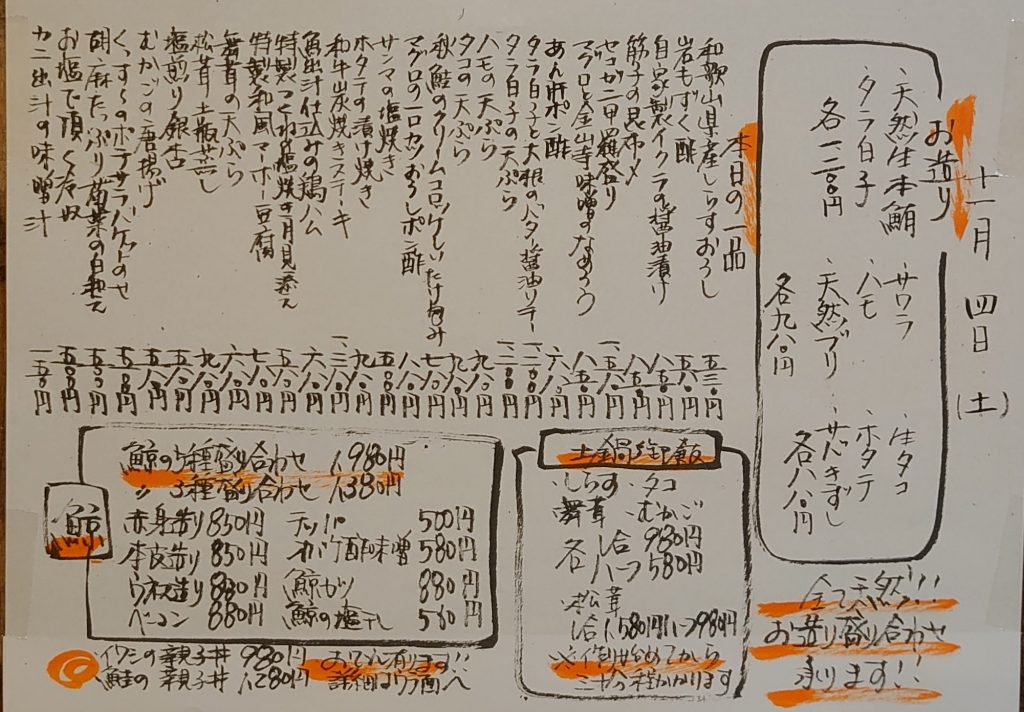 十一月 四日 (土)
お造り
・天然生本鮪
・タラ白子
各一二〇〇円
・サワラ
・ハモ
・天然ブリ
各九八〇円
・生タコ
・ホタテ
・サバきずし
各八八〇円
全て天然!!
お造り盛り合わせ
承ります!!
本日の一品
和歌山県産しらすおろし 五三〇円
岩もずく酢 五八〇円
自家製イクラの醤油漬け 八五〇円
筋子の昆布〆 八五〇円
セコガニ甲羅盛り
マグロと金山寺味噌のなめろう 八五〇円
あん肝ポン酢 六八〇円
タラ白子と大根のバター醤油ソテー 一、二〇〇円
タラ白子の天ぷら 一、二〇〇円
ハモの天ぷら 九八〇円
タコの天ぷら 九八〇円
秋鮭のクリームコロッケしいたけ包み 七八〇円
マグロの一口カツおろしポン酢 八八〇円
サンマの塩焼き 五八〇円
ホタテの漬け焼き 九八〇円
和牛炭焼きステーキ 一、三八〇円
魚出汁仕込みの鶏ハム 六八〇円
特製つくね塩焼の月見添え 五八〇円
特製和風マーボー豆腐 七八〇円
舞茸の天ぷら 六八〇円
松茸土瓶蒸し 九八〇円
塩煎り銀杏 五八〇円
むかごの唐揚げ 五八〇円
くっすんのポテサラバゲットのせ 六五〇円
胡麻たっぷり菊菜の白和え 五五〇円
お塩で頂く冷奴 五五〇円
カニ出汁の味噌汁 一五〇円
土鍋御飯
・しらす ・タコ
・舞茸 ・むかご
各 一合 980円
ハーフ 580円
・松茸
一合1,580円 ハーフ980円
※作り始めてから
三十分程かかります
鯨
鯨の5種盛り合わせ 1,980円
〃 3種盛り合わせ 1,380円
赤身造り 850円
本皮造り 850円
ウネス造り 880円
ベーコン 880円
テッパ 500円
オバケ酢味噌 580円
鯨カツ 880円
鯨の塩干し 580円
・イワシの親子丼 980円
・鮭の親子丼 1,280円
おでん有ります!!
詳細はウラ面へ